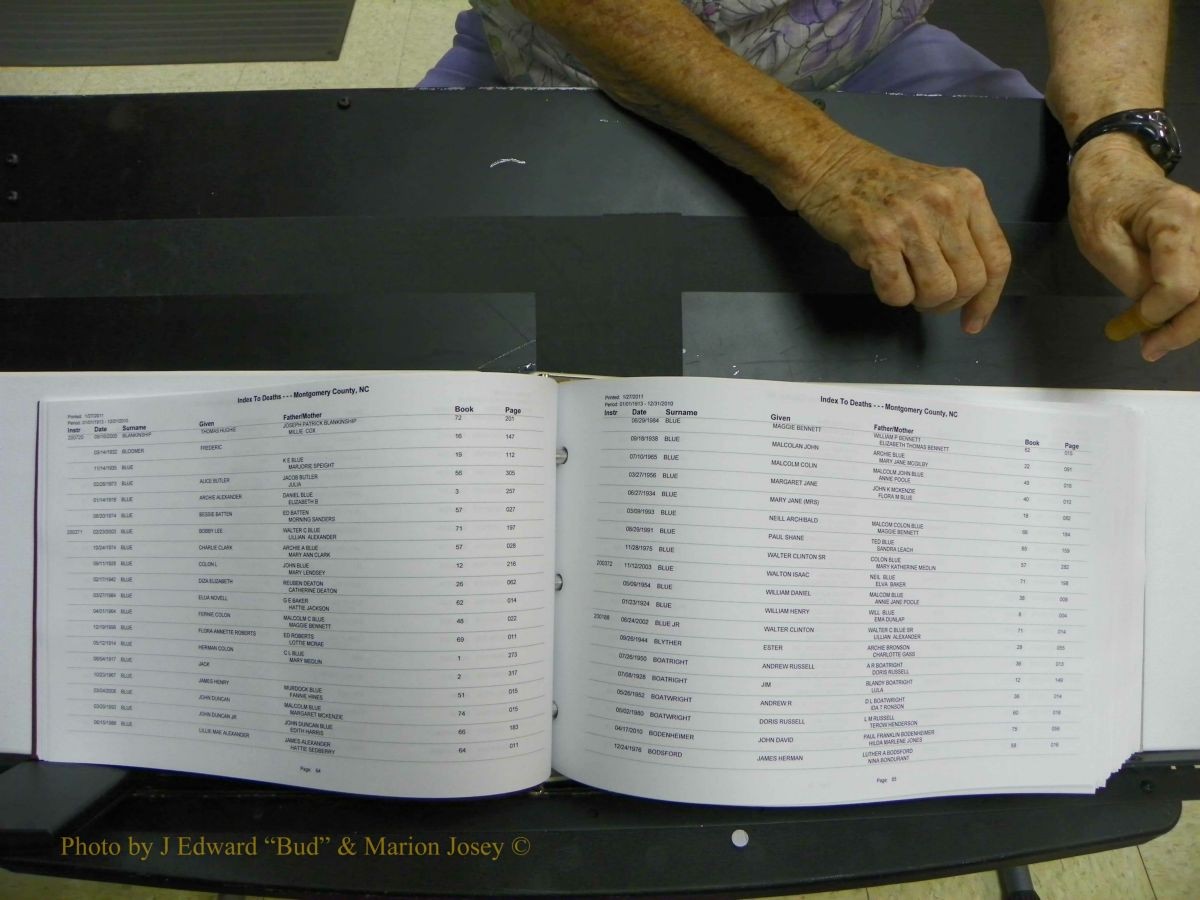 Index To Deaths - - - Montgomery County, NC
Printed: 1/27/2011
Period: 01/01/1913 - 12/31/2010
Instr Date Surname Given Father/Mother Book Page
BLANKINSHIP THOMAS HUGHIE JOSEPH PATRICK BLANKINSHIP 72 201
MILLIE COX
BLOOMER FREDERIC 16 147
BLUE K E BLUE 19 112
MARJORIE SPEIGHT
BLUE ALICE BUTLER JACOB BUTLER 56 305
JULIA
BLUE ARCHIE ALEXANDER DANIEL BLUE 3 257
ELIZABETH B
BLUE BESSIE BATTEN ED BATTEN 57 027
MORNING SANDERS
200371 BLUE BOBBY LEE WALTER C BLUE 71 197
LILLIAN ALEXANDER
BLUE CHARLIE CLARK ARCHIE A BLUE 57 028
MARY ANN CLARK
BLUE COLON L JOHN BLUE 12 216
MARY LENDSEY
BLUE DIZA ELIZABETH REUBEN DEATON 26 062
CATHERINE DEATON
BLUE ELIA NOVELL G E BAKER 62 014
HATTIE JACKSON
BLUE FERNIE COLON MALCOLM C BLUE 48 022
MAGGIE BENNETT
BLUE FLORA ANNETTE ROBERTS ED ROBERTS 69 011
LOTTIE MCRAE
BLUE HERMAN COLON C L BLUE 1 273
MARY MEDLIN
BLUE JACK 2 317
BLUE JAMES HENRY MURDOCK BLUE 51 015
FANNIE HINES
BLUE JOHN DUNCAN MALCOLM BLUE 74 015
MARGARET MCKENZIE
BLUE JOHN DUNCAN JR JOHN DUNCAN BLUE 66 183
EDITH HARRIS
BLUE LILLIE MAE ALEXANDER JAMES ALEXANDER 64 011
HATTIE SEDBERRY
Page 64
Index To Deaths - - - Montgomery County, NC
Printed: 1/27/2011
Period: 01/01/1913 - 12/31/2010
Instr Date Surname Given Father/Mother Book Page
06/29/1984 BLUE MAGGIE BENNETT WILLIAM P BENNETT 62 015
ELIZABETH THOMAS BENNETT
09/18/1938 BLUE MALCOLAN JOHN ARCHIE BLUE 22 091
MARY JANE MCGILBY
07/10/1965 BLUE MALCOLM COLIN MALCOLM JOHN BLUE 49 018
ANNIE POOLE
03/27/1956 BLUE MARGARET JANE JOHN K MCKENZIE 40 013
FLORA M BLUE
06/27/1934 BLUE MARY JANE (MRS) 18 082
03/09/1993 BLUE NEILL ARCHIBALD MALCOM COLON BLUE 184
MAGGIE BENNETT
08/26/1991 BLUE PAUL SHANE TED BLUE 159
SANDRA LEACH
11/28/1975 BLUE WALTER CLINTON SR COLON BLUE 57 282
MARY KATHERINE MEDLIN
200372 11/12/2003 BLUE WALTON ISAAC NEIL BLUE 71 198
ELVA BAKER
05/09/1954 BLUE WILLIAM DANIEL MALCOM BLUE 38 009
ANNIE JANE POOLE
01/23/1924 BLUE WILLIAM HENRY WILL BLUE 8 004
EMA DUNLAP
200188 06/24/2002 BLUE JR WALTER CLINTON WALTER C BLUE SR 71 014
LILLIAN ALEXANDER
09/26/1944 BLYTHER ESTER ARCHIE BRONSON 28 055
CHARLOTTE GASS
07/26/1950 BOATRIGHT ANDREW RUSSELL A R BOATRIGHT 36 013
DORIS RUSSELL
07/08/1928 BOATRIGHT JIM BLANDY BOATRIGHT 12 149
LULA
05/26/1952 BOATWRIGHT ANDREW R D L BOATWRIGHT 36 014
IDA T RONSON
05/02/1980 BOATWRIGHT DORIS RUSSELL L M RUSSELL 60 018
TEROW HENDERSON
04/17/2010 BODENHEIMER JOHN DAVID PAUL FRANKLIN BODENHEIMER 75 098
HILDA MARLENE JONES
12/24/1976 BODSFORD JAMES HERMAN LUTHER A BODSFORD 58 016
NINA BONDURANT
Page 65
Photo by J Edward “Bud” & Marion Josey ©